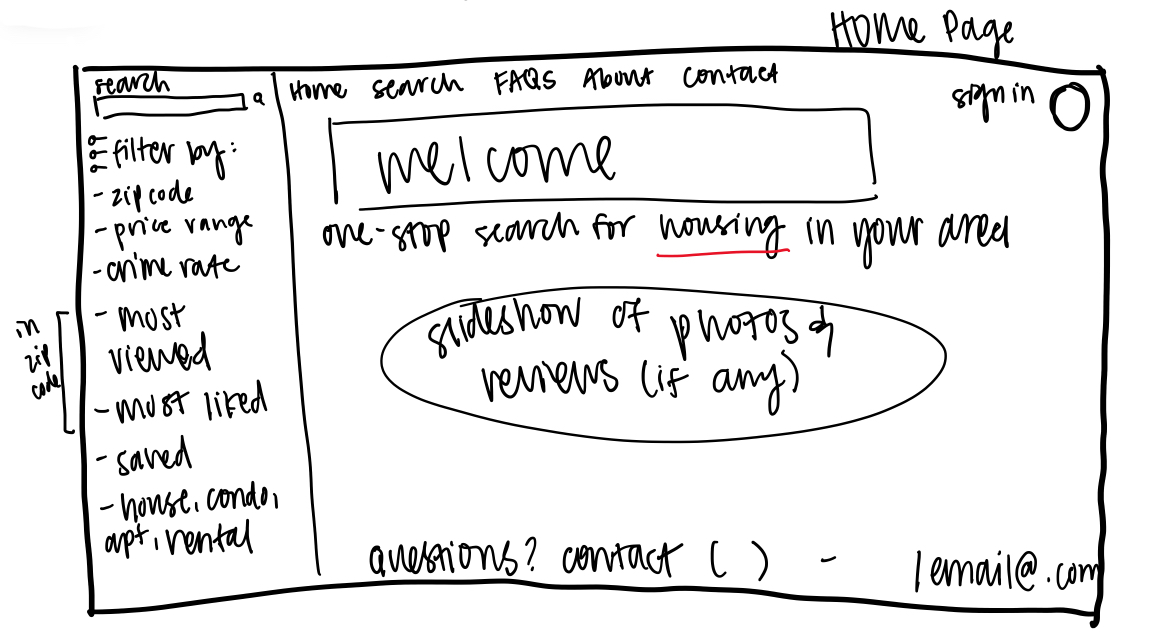 Home Page
search
filter by:
- zip code
- price range
- crime rate
- most
viewed
- most liked
in
zip
code
- saved
- house, condo,
apt, rental
Home search FAQS About contact
sign in
welcome
one-stop search for housing in your area
slideshow of photos &
reviews (if any)
questions? contact ( ) - / email@.com